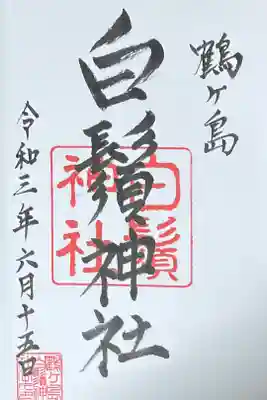 鶴ヶ島
白鬚神社
白鬚
神社
令和三年六月十五日